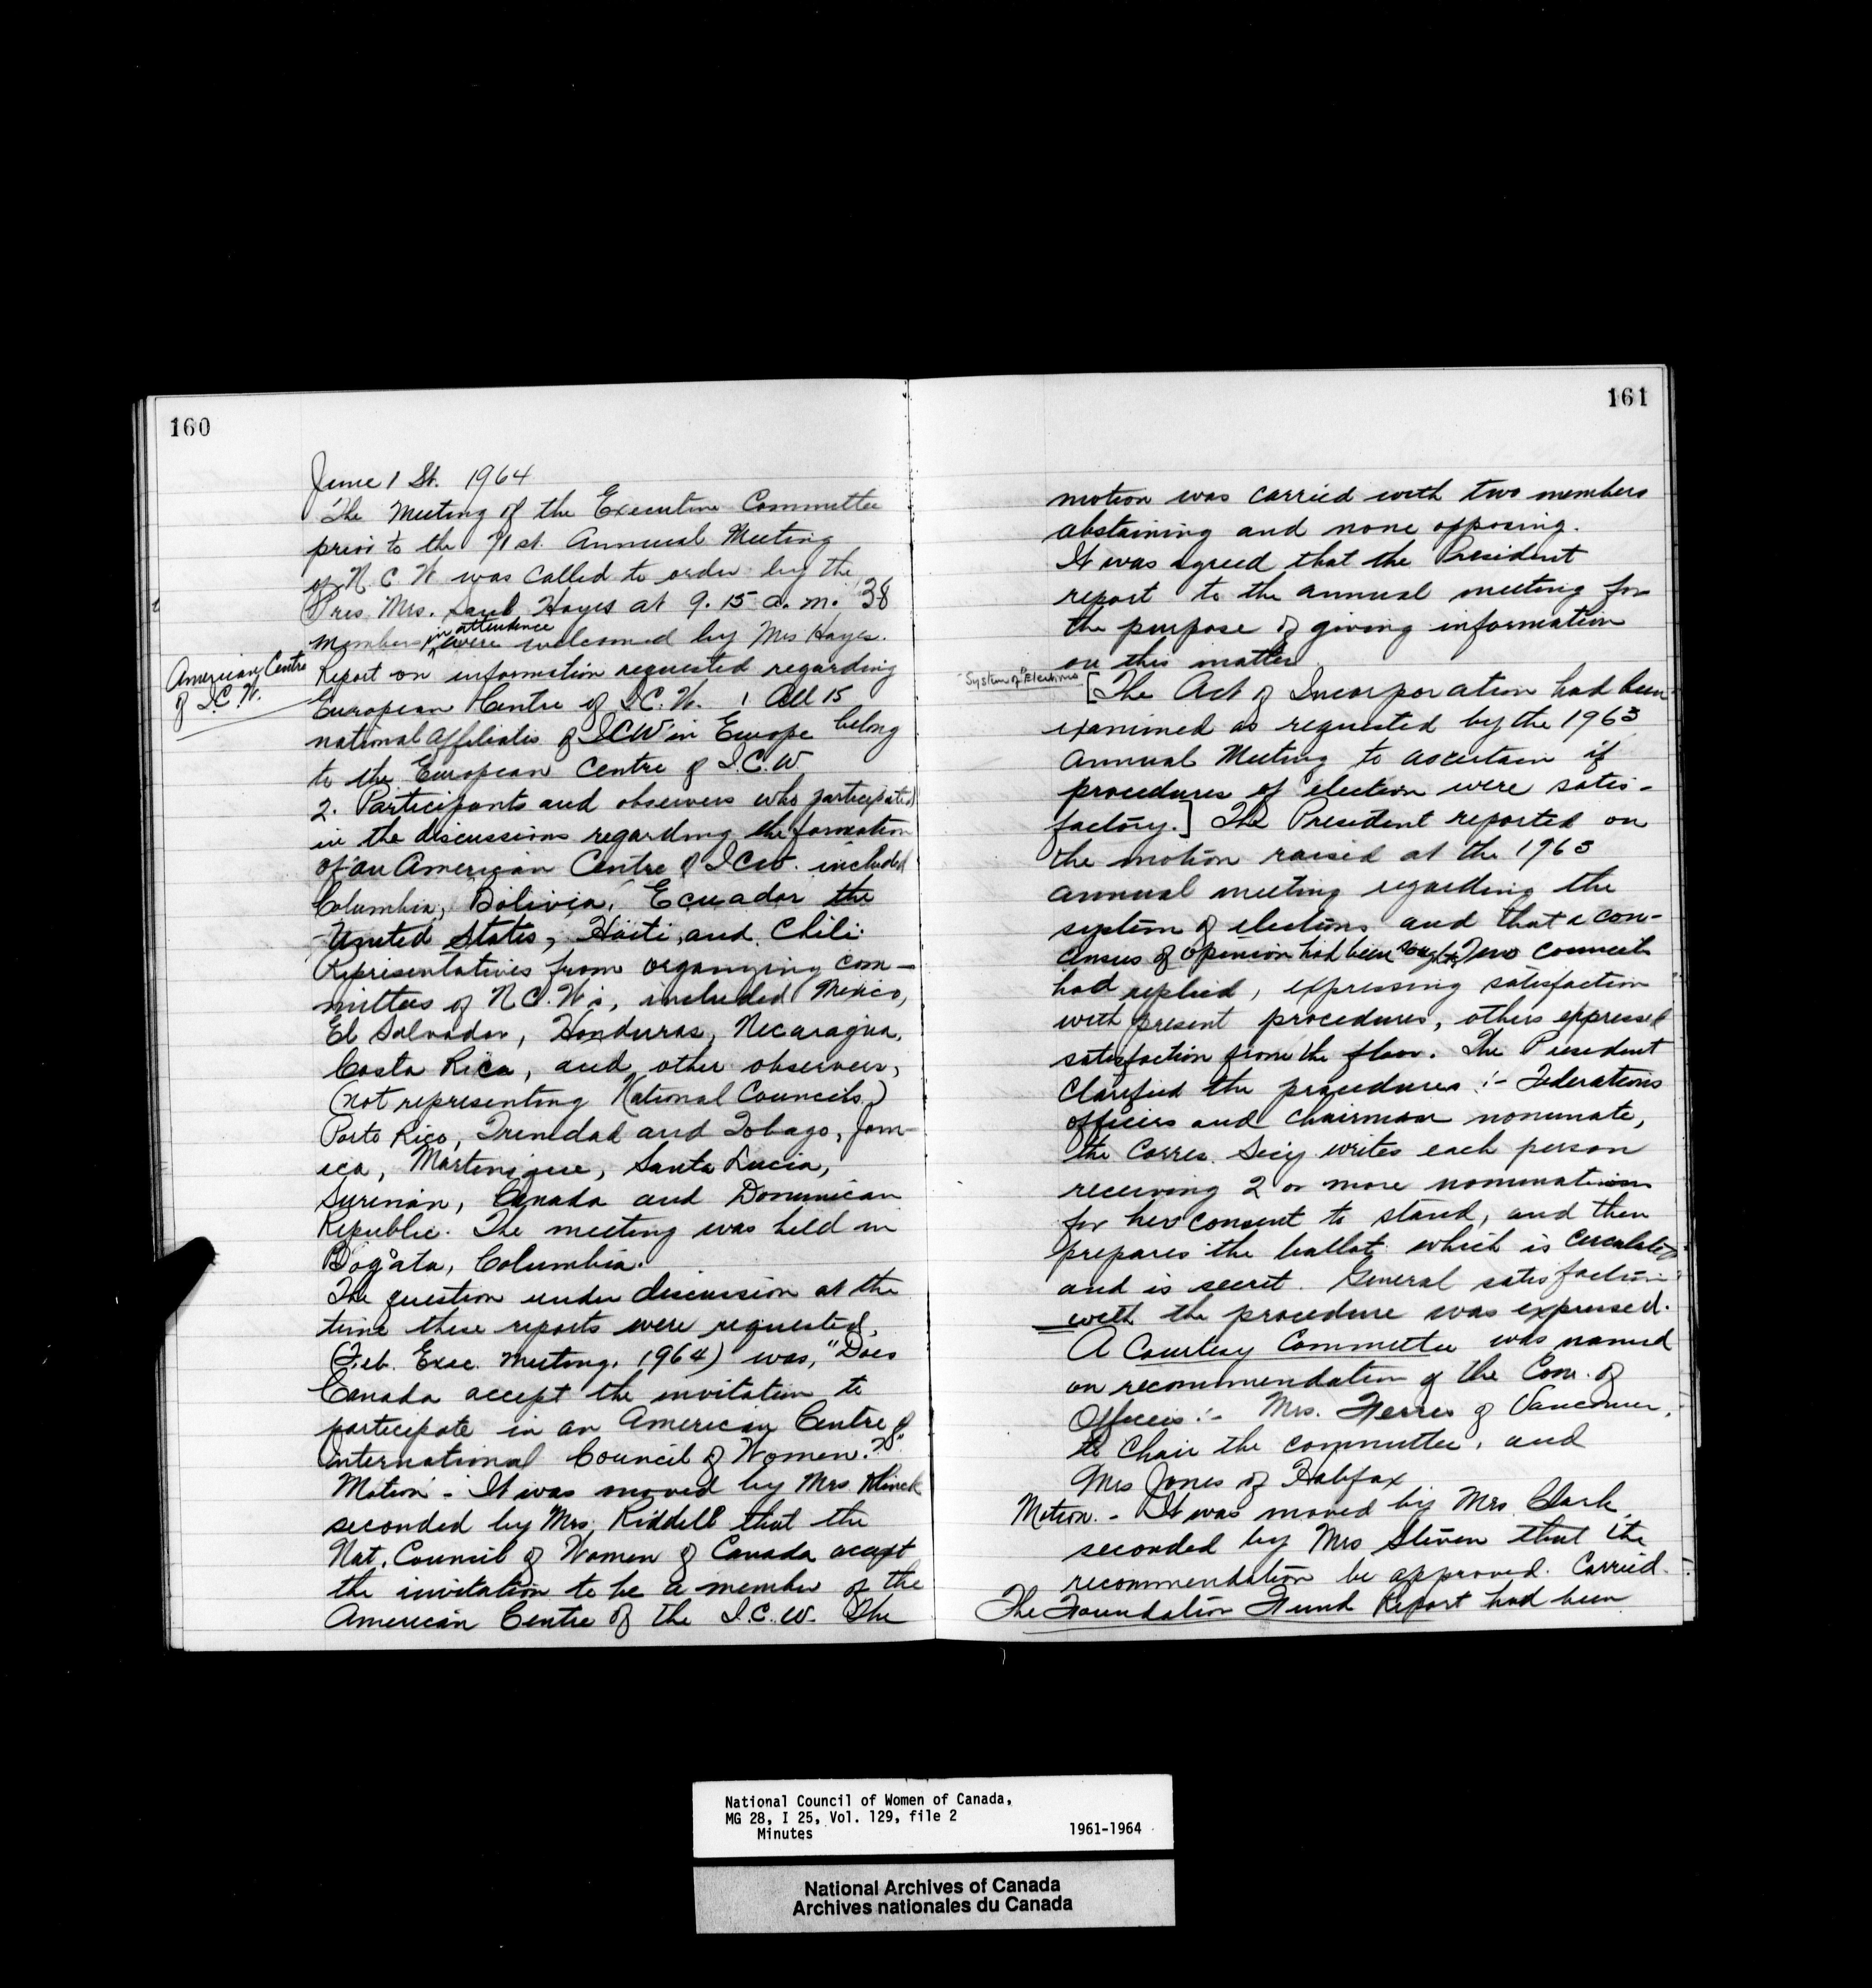 160
June 1 St. 1964
The Meeting of the Executive Committee
prior to the 71st. Annual Meeting
of N C W was called to order by the
Pres Mrs. Saul Hayes at 9.15 a.m. 38
members in attendence were welcomed by Mrs Hayes.
American Centre
of I.C.W.
Report on information requested regarding
European Centre of I.C.W. 1 All 15
national affiliates of ICW in Europe belong
to the European Centre of I.C.W
2. Participants and observers who participated
in the discussions regarding the formation
of an American Centre of ICW. included
Columbia, Bolivia, Ecuador the
United States, Haiti, and Chili.
Representatives from organizing com-
mittees of N C.W's, included Mexico,
El Salvador, Honduras, Necaragua,
Costa Rica, and other observers,
(not representing National Councils,)
Porto Rico, Trinidad and Tobago, Jam-
ica, Martinique, Santa Lucia,
Surinan, Canada and Dominican
Republic. The meeting was held in
Bogata, Columbia.
The question under discussion at the
time these reports were requested,
(Feb. Exec. Meeting, 1964) was, "Does
Canada accept the invitation to
participate in an American Centre of
International Council of Women?"
Motion - It was moved by Mrs Klinck
seconded by Mrs, Riddell that the
Nat. Council of Women of Canada accept
the invitation to be a member of the
American Centre of the I.C.W. The
161
motion was carried with two members
abstaining and none opposing.
It was agreed that the President
report to the annual meeting for
the purpose of giving information
on this matter
"System of Elections"
[The Act of Incorporation had been
examined as requested by the 1963
Annual Meeting to ascertain if
procedures of election were satis-
factory.] The President reported on
the motion raised at the 1963
annual meeting regarding the
system of elections and that a con-
census of opinion had been sought. Two Councils
had replied, expressing satisfaction
with present procedures, others expressed
satisfaction from the floor. The President
clarified the procedures :- Federations
officers and chairman nominate,
the Corres. Secy writes each person
receiving 2 or more nominations
for her consent to stand, and then
prepares the ballot which is circulated
and is secret. General satisfaction
with the procedure was expressed.
A Courtesy Committee was named
on recommendation of the Com. of
Officers :- Mrs. Ferres of Vancouver,
to Chair the committee, and
Mrs Jones of Halifax
Motion. - It was moved by Mrs. Clark,
seconded by Mrs Steven that the
recommendation be approved. Carried.
The Foundation Fund Report had been
National Council of Women of Canada,
MG 28, I 25, Vol. 129, file 2
Minutes 1961-1964
National Archives of Canada
Archives nationales du Canada